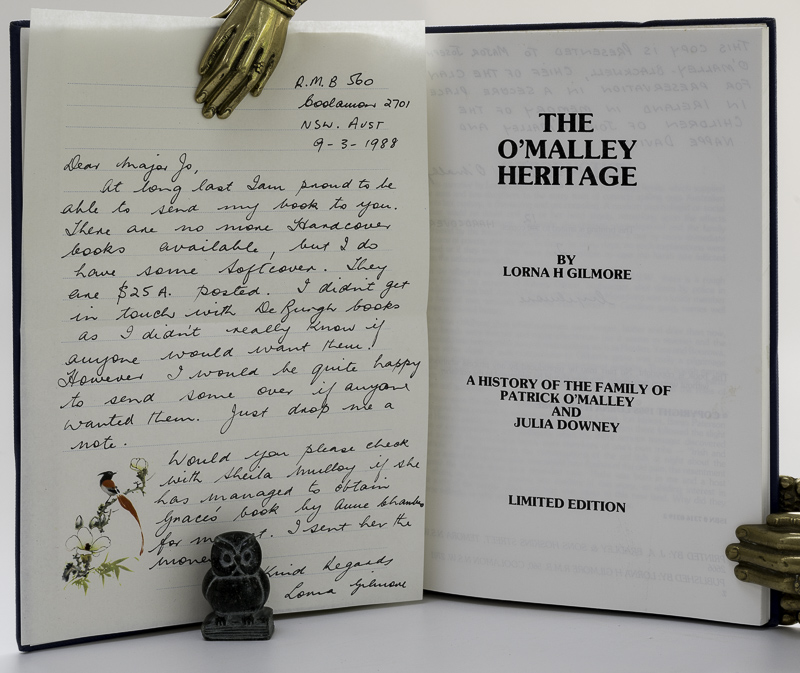 R.M.B 560
Coolamon 2701
NSW. AUST
9-3-1988
Dear Major Jo,
At long last I am proud to be
able to send my book to you.
There are no more Hardcover
books available, but I do
have some Softcover. They
are $25 A. posted. I didn't get
in touch with De Burgh books
as I didn't really know if
anyone would want them.
However I would be quite happy
to send some over if anyone
wanted them. Just drop me a
note.
Would you please check
with Sheila Mulloy if she
has managed to obtain
Grace's book by Anne Chambers
for me. I sent her the
money
Kind Regards
Lorna Gilmore
THE
O'MALLEY
HERITAGE
BY
LORNA H GILMORE
A HISTORY OF THE FAMILY OF
PATRICK O'MALLEY
AND
JULIA DOWNEY
LIMITED EDITION
THIS COPY IS PRESENTED TO MAJOR
O'MALLEY BLACKWELL, CHIEF OF THE CLAN
FOR PRESERVATION IN A SECURE PLACE
IN IRELAND IN MEMORY OF THE
CHILDREN OF